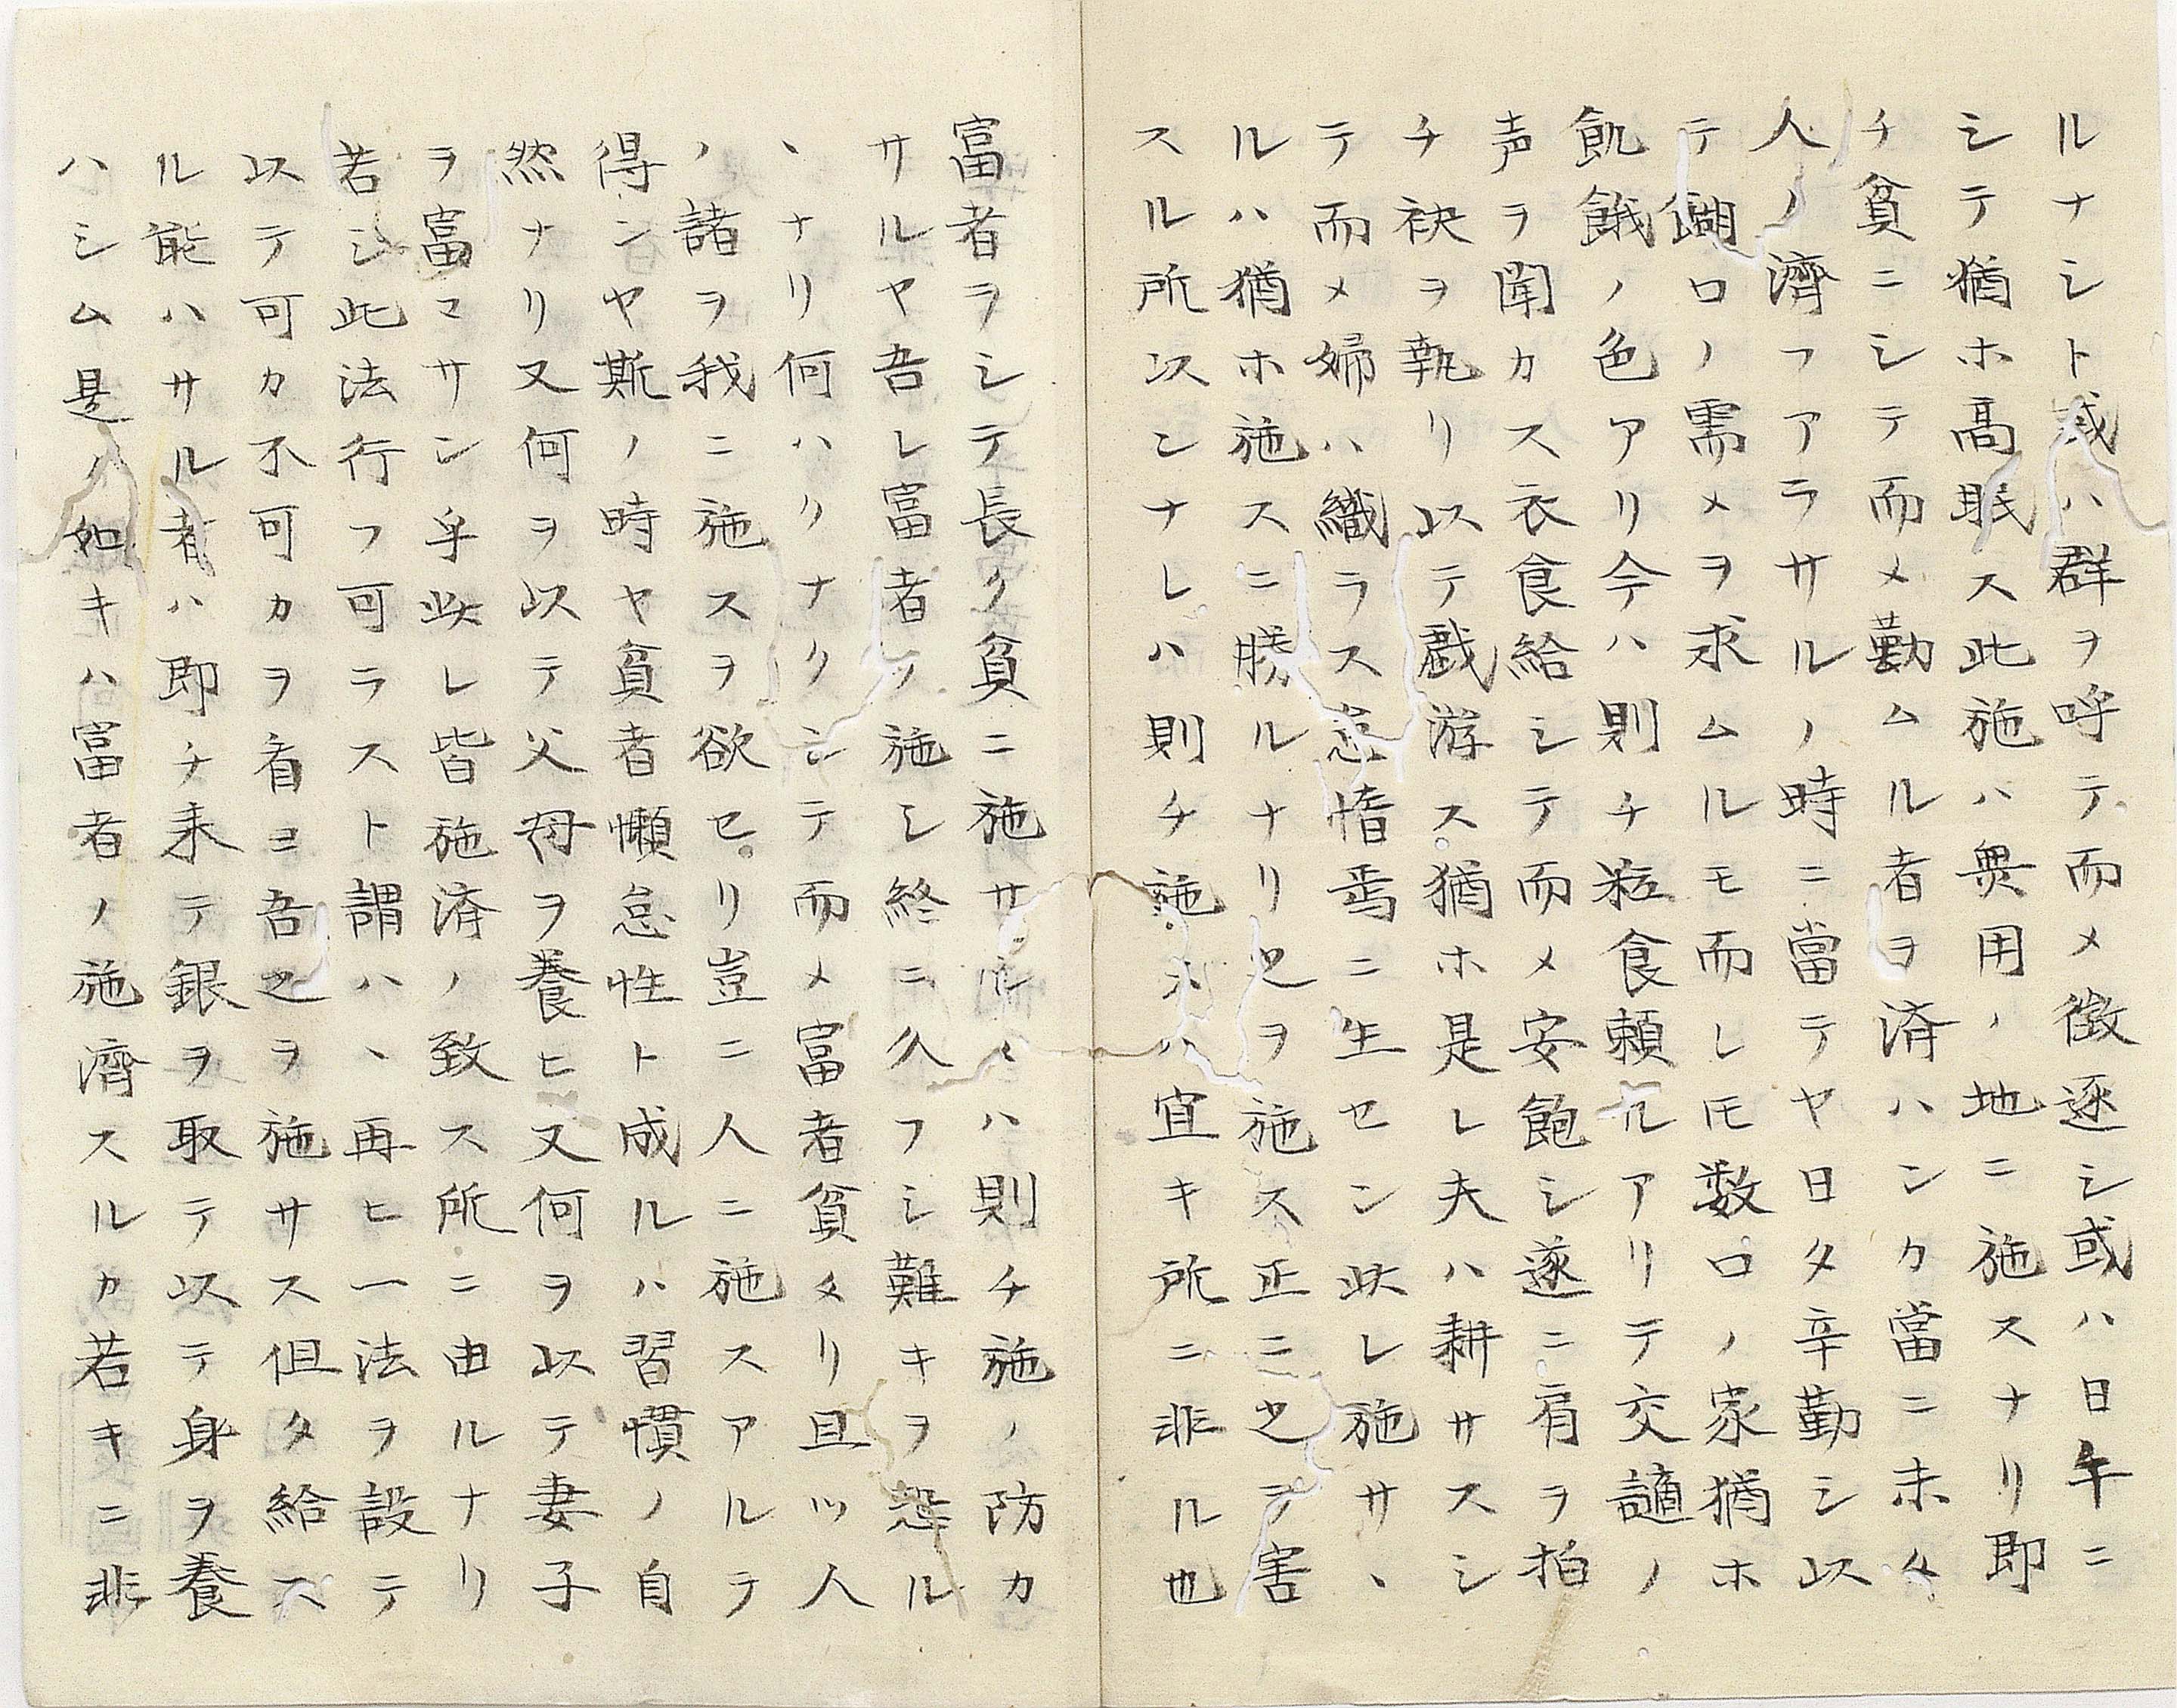 ルナシト或ハ群ヲ呼テ而メ徴逐シ或ハ日午ニ
シテ猶ホ高眠ス此施ハ無用ノ地ニ施スナリ即
チ貧ニシテ而メ勤ムル者ヲ済ハンカ當ニ未タ
人ノ濟フアラサルノ時ニ當テヤ日夕辛勤シ以
テ餬口ノ需メヲ求ムルモ而レモ数口ノ家猶ホ
飢餓ノ色アリ今ハ則チ粒食頼ルアリテ交謫ノ
声ヲ聞カス衣食給シテ而メ安飽シ遂ニ肩ヲ拍
チ袂ヲ執リ以テ戯游ス猶ホ是レ夫ハ耕サスシ
テ而メ婦ハ織ラス怠惰焉ニ生セン此レ施サヽ
ルハ猶ホ施スニ勝ルナリ之ヲ施ス正ニ之ヲ害
スル所以ンナレハ則チ施スハ宜キ所ニ非ル也
富者ヲシテ長ク貧ニ施サシメハ則チ施ノ防カ
サルヤ吾レ富者ノ施シ終ニ久フシ難キヲ恐ル
ヽナリ何ハクナクシテ而メ富者貧メリ且ツ人
ノ諸ヲ我ニ施スヲ欲セリ豈ニ人ニ施スアルテ
得ンヤ斯ノ時ヤ貧者懶怠性ト成ルハ習慣ノ自
然ナリ又何ヲ以テ父母ヲ養ヒ又何ヲ以テ妻子
ヲ富マサン乎此レ皆施済ノ致ス所ニ由ルナリ
若シ此法行フ可ラスト謂ハヽ再ヒ一法ヲ設テ
以テ可カ不可カヲ看ヨ吾之ヲ施サス但タ給ス
ル能ハサル者ハ即チ来テ銀ヲ取テ以テ身ヲ養
ハシム是ノ如キハ富者ノ施濟スルカ若キニ非